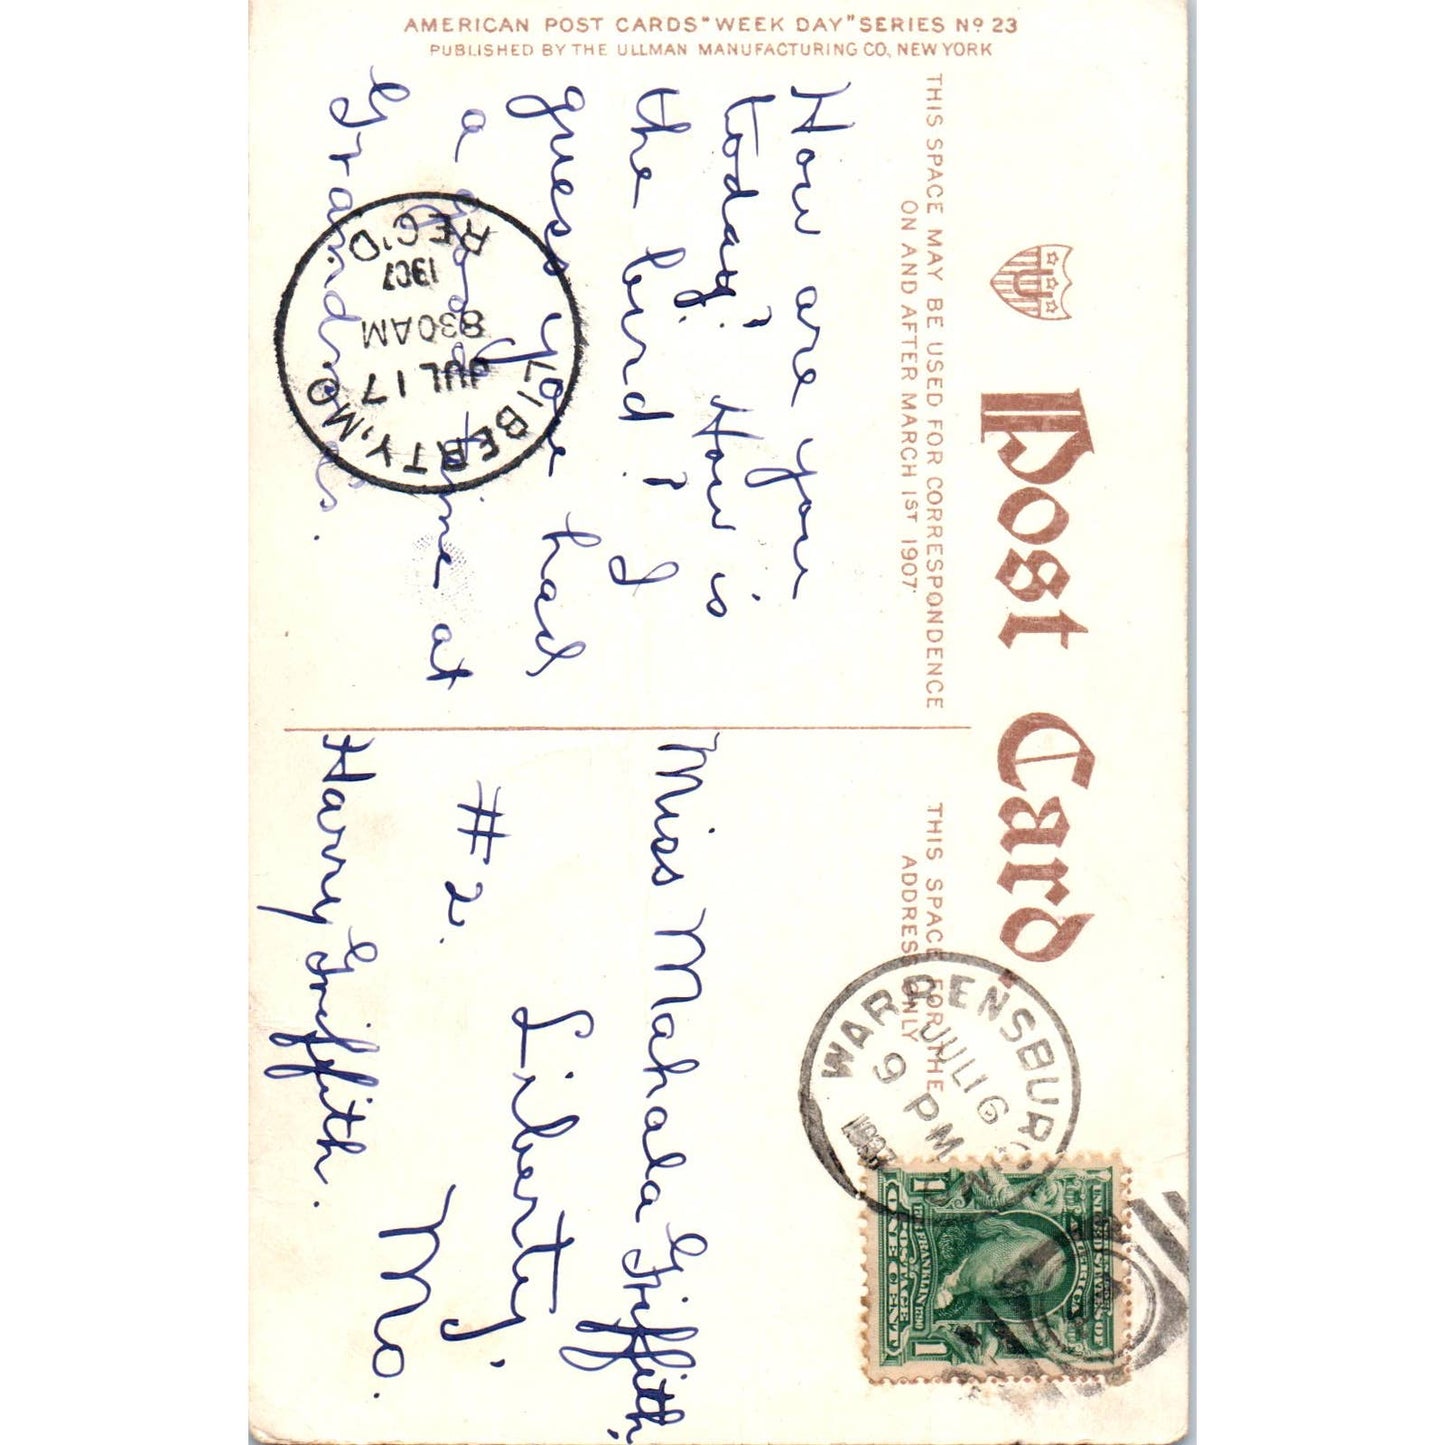 AMERICAN POST CARDS "WEEK DAY" SERIES No 23
PUBLISHED BY THE ULLMAN MANUFACTURING CO, NEW YORK
Post Card
THIS SPACE MAY BE USED FOR CORRESPONDENCE
ON AND AFTER MARCH 1ST 1907
How are you
today? How is
the bird? I
guess you had
a good time at
Grandma's.
LIBERTY, MO.
JUL 17
830AM
1907
REC'D
THIS SPACE FOR THE
ADDRESS ONLY
WARRENSBURG
JUL 16
9 PM
1907
Miss Mahala Griffith,
Liberty,
#2. Mo.
Harry Griffith.
FRANKLIN
POSTAGE
1 ONE CENT 1